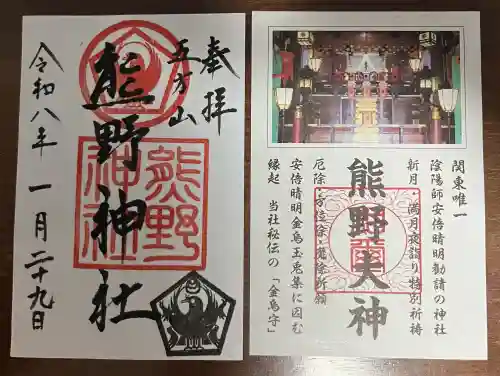 奉拝
五方山
熊野神社
熊野
神社
令和八年 一月 二十九日
関東唯一
陰陽師安倍晴明勧請の神社
新月・満月夜詣り特別祈祷
熊野大神
厄除・方位除・鬼除祈願
安倍晴明金烏玉兎集に因む
縁起 当社秘伝の「金烏守」